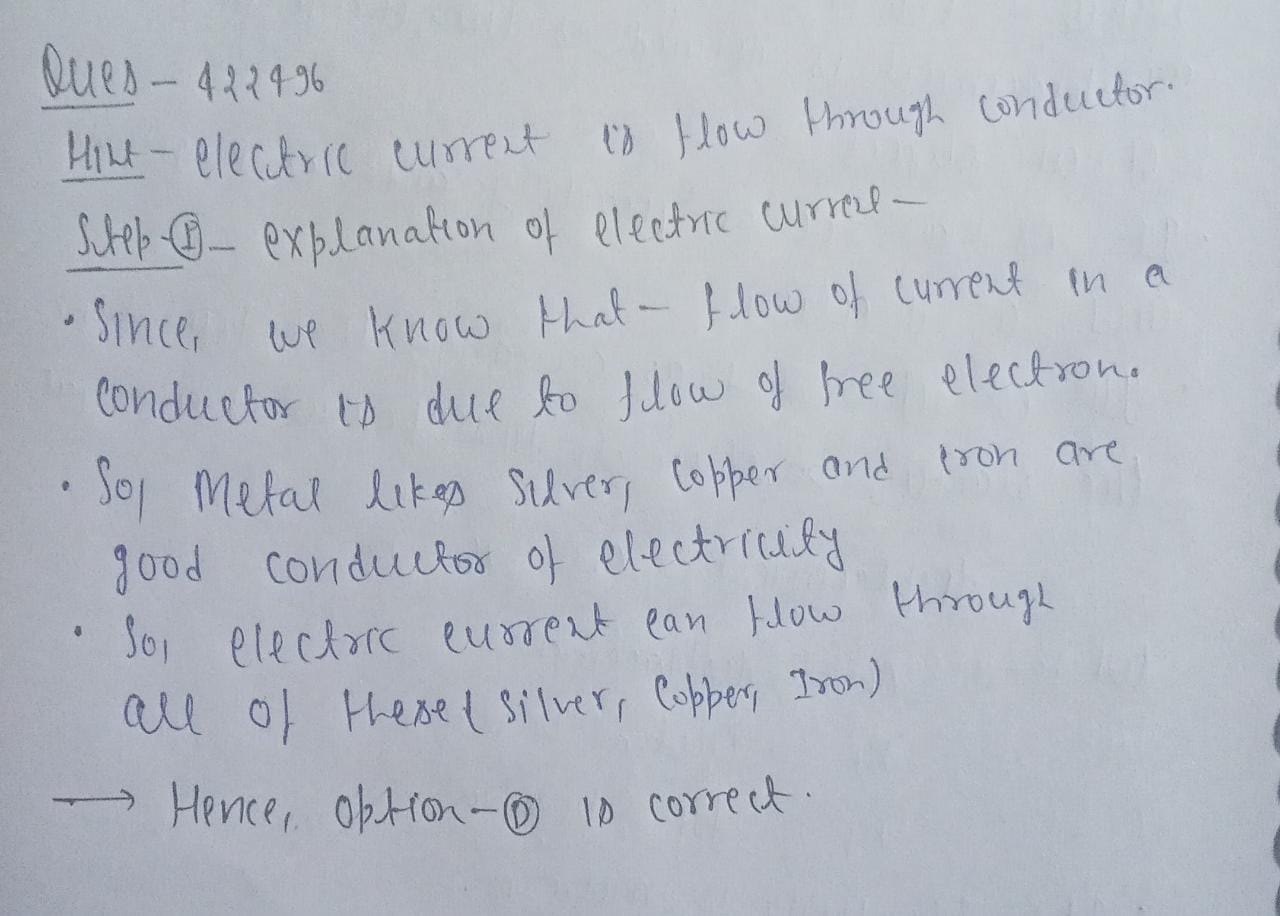 Ques - 422496
Hint - electric current is flow through conductor.
Step-① - explanation of electric curret -
• Since, we know that - flow of current in a
conductor is due to flow of free electron.
• So, Metal likes Silver, Copper and iron are
good conductor of electricity
• So, electric current can flow through
all of these ( silver, Copper, Iron)
→ Hence, option - Ⓓ is correct.